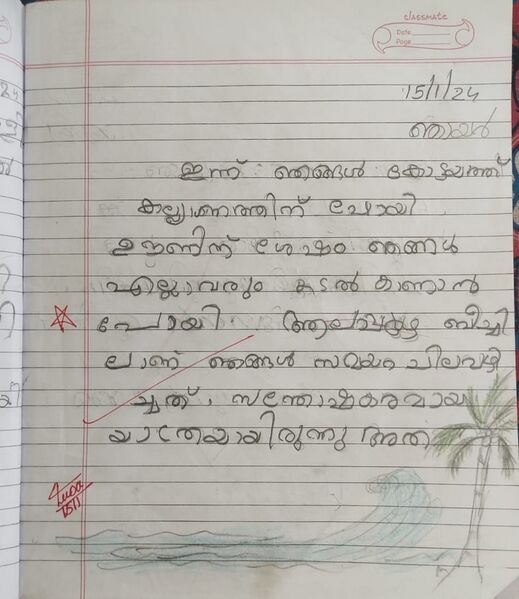 classmate
Date
Page
15/1/24
ഞായർ
ഇന്ന് ഞങ്ങൾ കോട്ടയത്ത്
കല്ല്യാണത്തിന് പോയി
ഉഊണിന് ശേഷം ഞങ്ങൾ
എല്ലാവരും കടൽ കാണാൻ
പോയി. ആലപ്പുഴ ബീച്ചി
ലാണ് ഞങ്ങൾ സമയം ചിലവഴി
ച്ചത്. സന്തോഷകരമായ
യാത്രയായിരുന്നു അത്
15/1